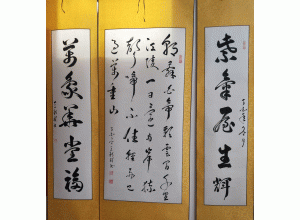 紫氣生輝
朝辭白帝彩雲間千里
江陵一日還兩岸猿
聲啼不住輕舟已
過萬重山
萬象堂福